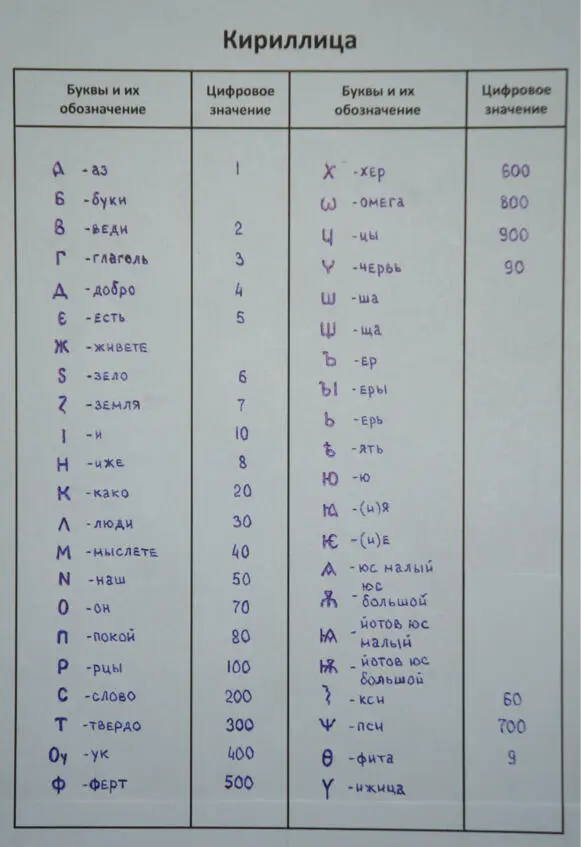 Кириллица
Буквы и их обозначение
Цифровое значение
Буквы и их обозначение
Цифровое значение
А -аз 1
Б -буки
В -веди 2
Г -глаголь 3
Д -добро 4
Є -есть 5
Ж -живете
Ѕ -зело 6
Ꙁ -земля 7
І -и 10
Н -иже 8
К -како 20
Л -люди 30
М -мыслете 40
N -наш 50
О -он 70
П -покой 80
Р -рцы 100
С -слово 200
Т -твердо 300
Оу -ук 400
Ф -ферт 500
Х -хер 600
Ѡ -омега 800
Ц -цы 900
Ч -червь 90
Ш -ша
Щ -ща
Ъ -ер
ЪІ -еры
Ь -ерь
Ѣ -ять
Ю -ю
Ꙗ -(и)я
Ѥ -(и)е
Ѧ -юс малый
Ѫ -юс большой
Ѩ -йотов юс малый
Ѭ -йотов юс большой
Ѯ -кси 60
Ѱ -пси 700
Ѳ -фита 9
Ѵ -ижица